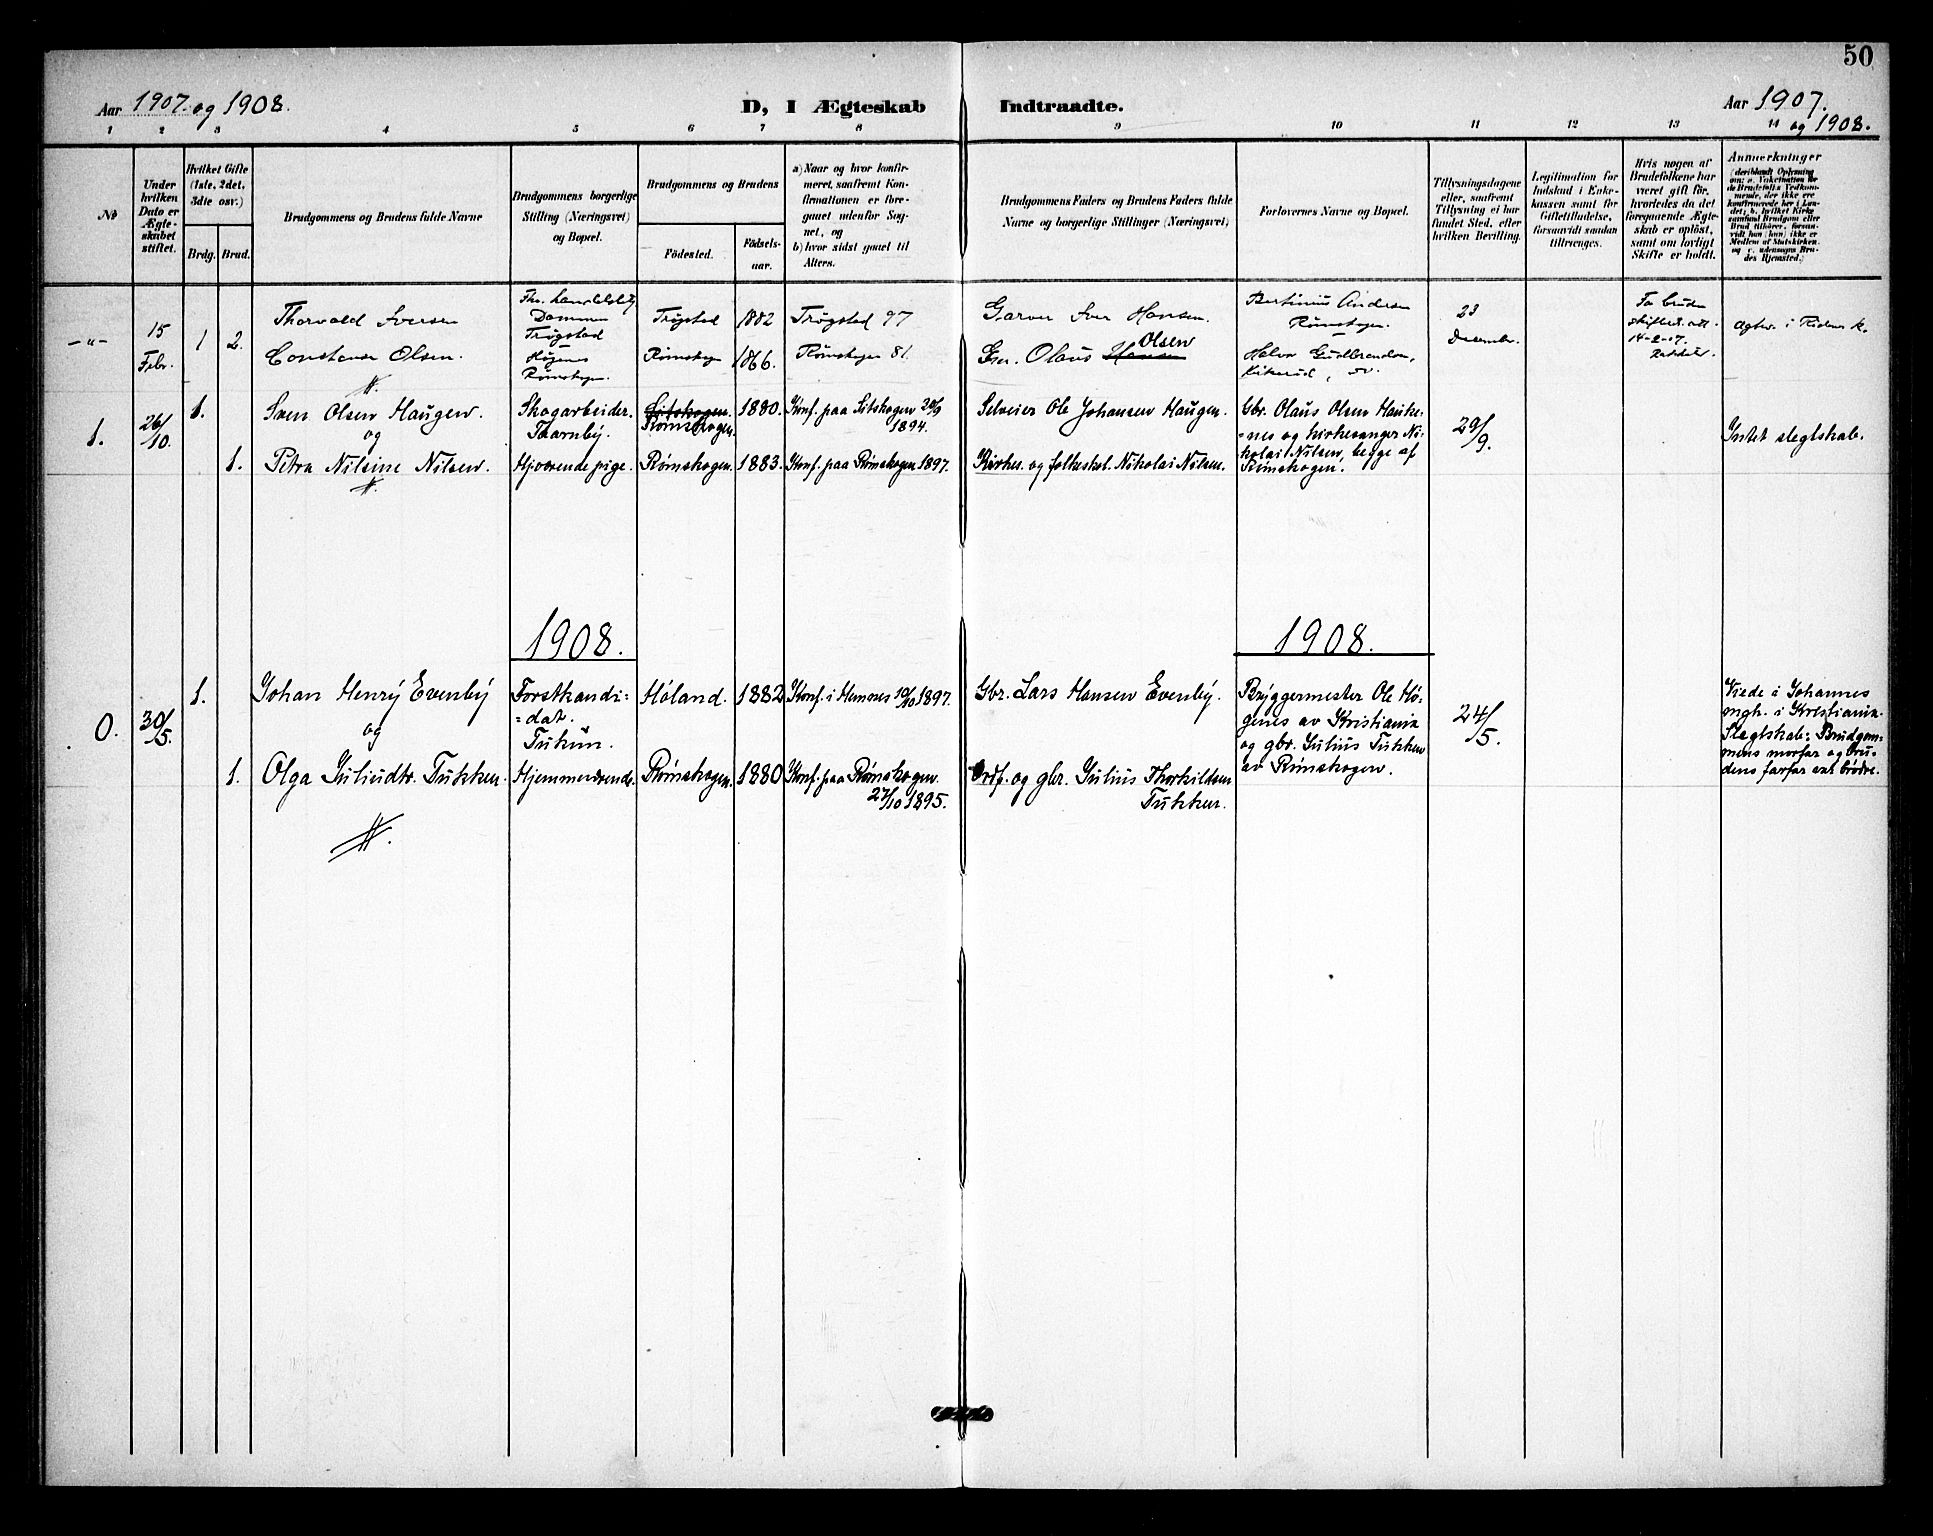 50
Aar 1907. og 1908.
D, I Ægteskab Indtraadte.
Aar 1907. og 1908.
1 2 3 4 5 6 7 8 9 10 11 12 13 14
No
Under hvilken Dato er Ægteskabet stiftet.
Hvilket Gifte (1ste, 2det, 3die osv.)
Brdg. Brud.
Brudgommens og Brudens fulde Navne
Brudgommens borgerlige Stilling (Næringsvei) og Bopæl.
Brudgommens og Brudens
Födested.
Födselsaar.
a) Naar og hvor konfirmeret, saafremt Konfirmationen er foregaaet udenfor Sognet, og
b) hvor sidst gaaet til Alters.
Brudgommens Faders og Brudens Faders fulde Navne og borgerlige Stillinger (Næringsvei)
Forlovernes Navne og Bopæl.
Tillysningsdagene eller, saafremt Tillysning ei har fundet Sted, efter hvilken Bevilling.
Legitimation for Indskud i Enkekassen samt for Giftetilladelse, forsaavidt saadan tiltrænges.
Hvis nogen af Brudefolkene har været gift för, hvorledes da det foregaaende Ægteskab er oplöst, samt om lovligt Skifte er holdt.
Anmerkninger
(deriblandt Oplysning om: a. Vakcination for de Brudefolks Vedkommende, der ikke ere konfirmerede her i Landet; b. hvilket Kirkesamfund Brudgom eller Brud tilhörer, forsaavidt han (hun) ikke er Medlem af Statskirken, og c. udensogns Brudes Hjemsted.)
-"-
15 Febr.
1 2.
Thorvald Iversen
Constanse Olsen.
Trøgstad
Rømskogen.
Trøgstad 1882 Trøgstad 97
Rømskogen 1866. Rømskogen 81.
Garver Iver Hansen.
Gm. Olaus Hansen Olsen
Bertinius Andersen
Rømskogen.
Halvor Gudbrandsen,
23 Desember.
14-2-07.
1.
26/10.
1.
Sven Olsen Haugen.
og
1. Petra Nilsine Nilsen.
Skogarbeider.
Taarnby.
Hjværende pige.
Sitskogen. Rømskogen. 1880. Konf. paa Sitskogen 30/9 1894.
Rømskogen. 1883. Konf. paa Rømskogen 1897.
Selveier Ole Johansen Haugen.
Kirkes. og folkeskol. Nikolai Nilsen.
Gbr. Olaus Olsen Haukenes
og kirkesanger Nikolai
Nilsen, begge af
Rømskogen.
29/9.
Intet slegtskab.
1908. 1908.
0.
30/5.
1.
Johan Henry Evenby
og
1. Olga Juliusdtr. Tukken.
Forstkandidat.
Tukun.
Hjemmeværende.
Høland. 1882 Konf. i Hemnes 10/10 1897.
Rømskogen. 1880 Konf. paa Rømskogen 27/10 1895.
Gbr. Lars Hansen Evenby.
Ordf. og gbr. Julius Thorkildsen
Tukken.
Bryggermester Ole Høgenes
av Kristiania
og gbr. Julius Tukken
av Rømskogen.
24/5.
Viede i Johannes
mgh. i Kristiania.
Slegtskab: Brudgommens
morfar og brudens
farfar var brødre.